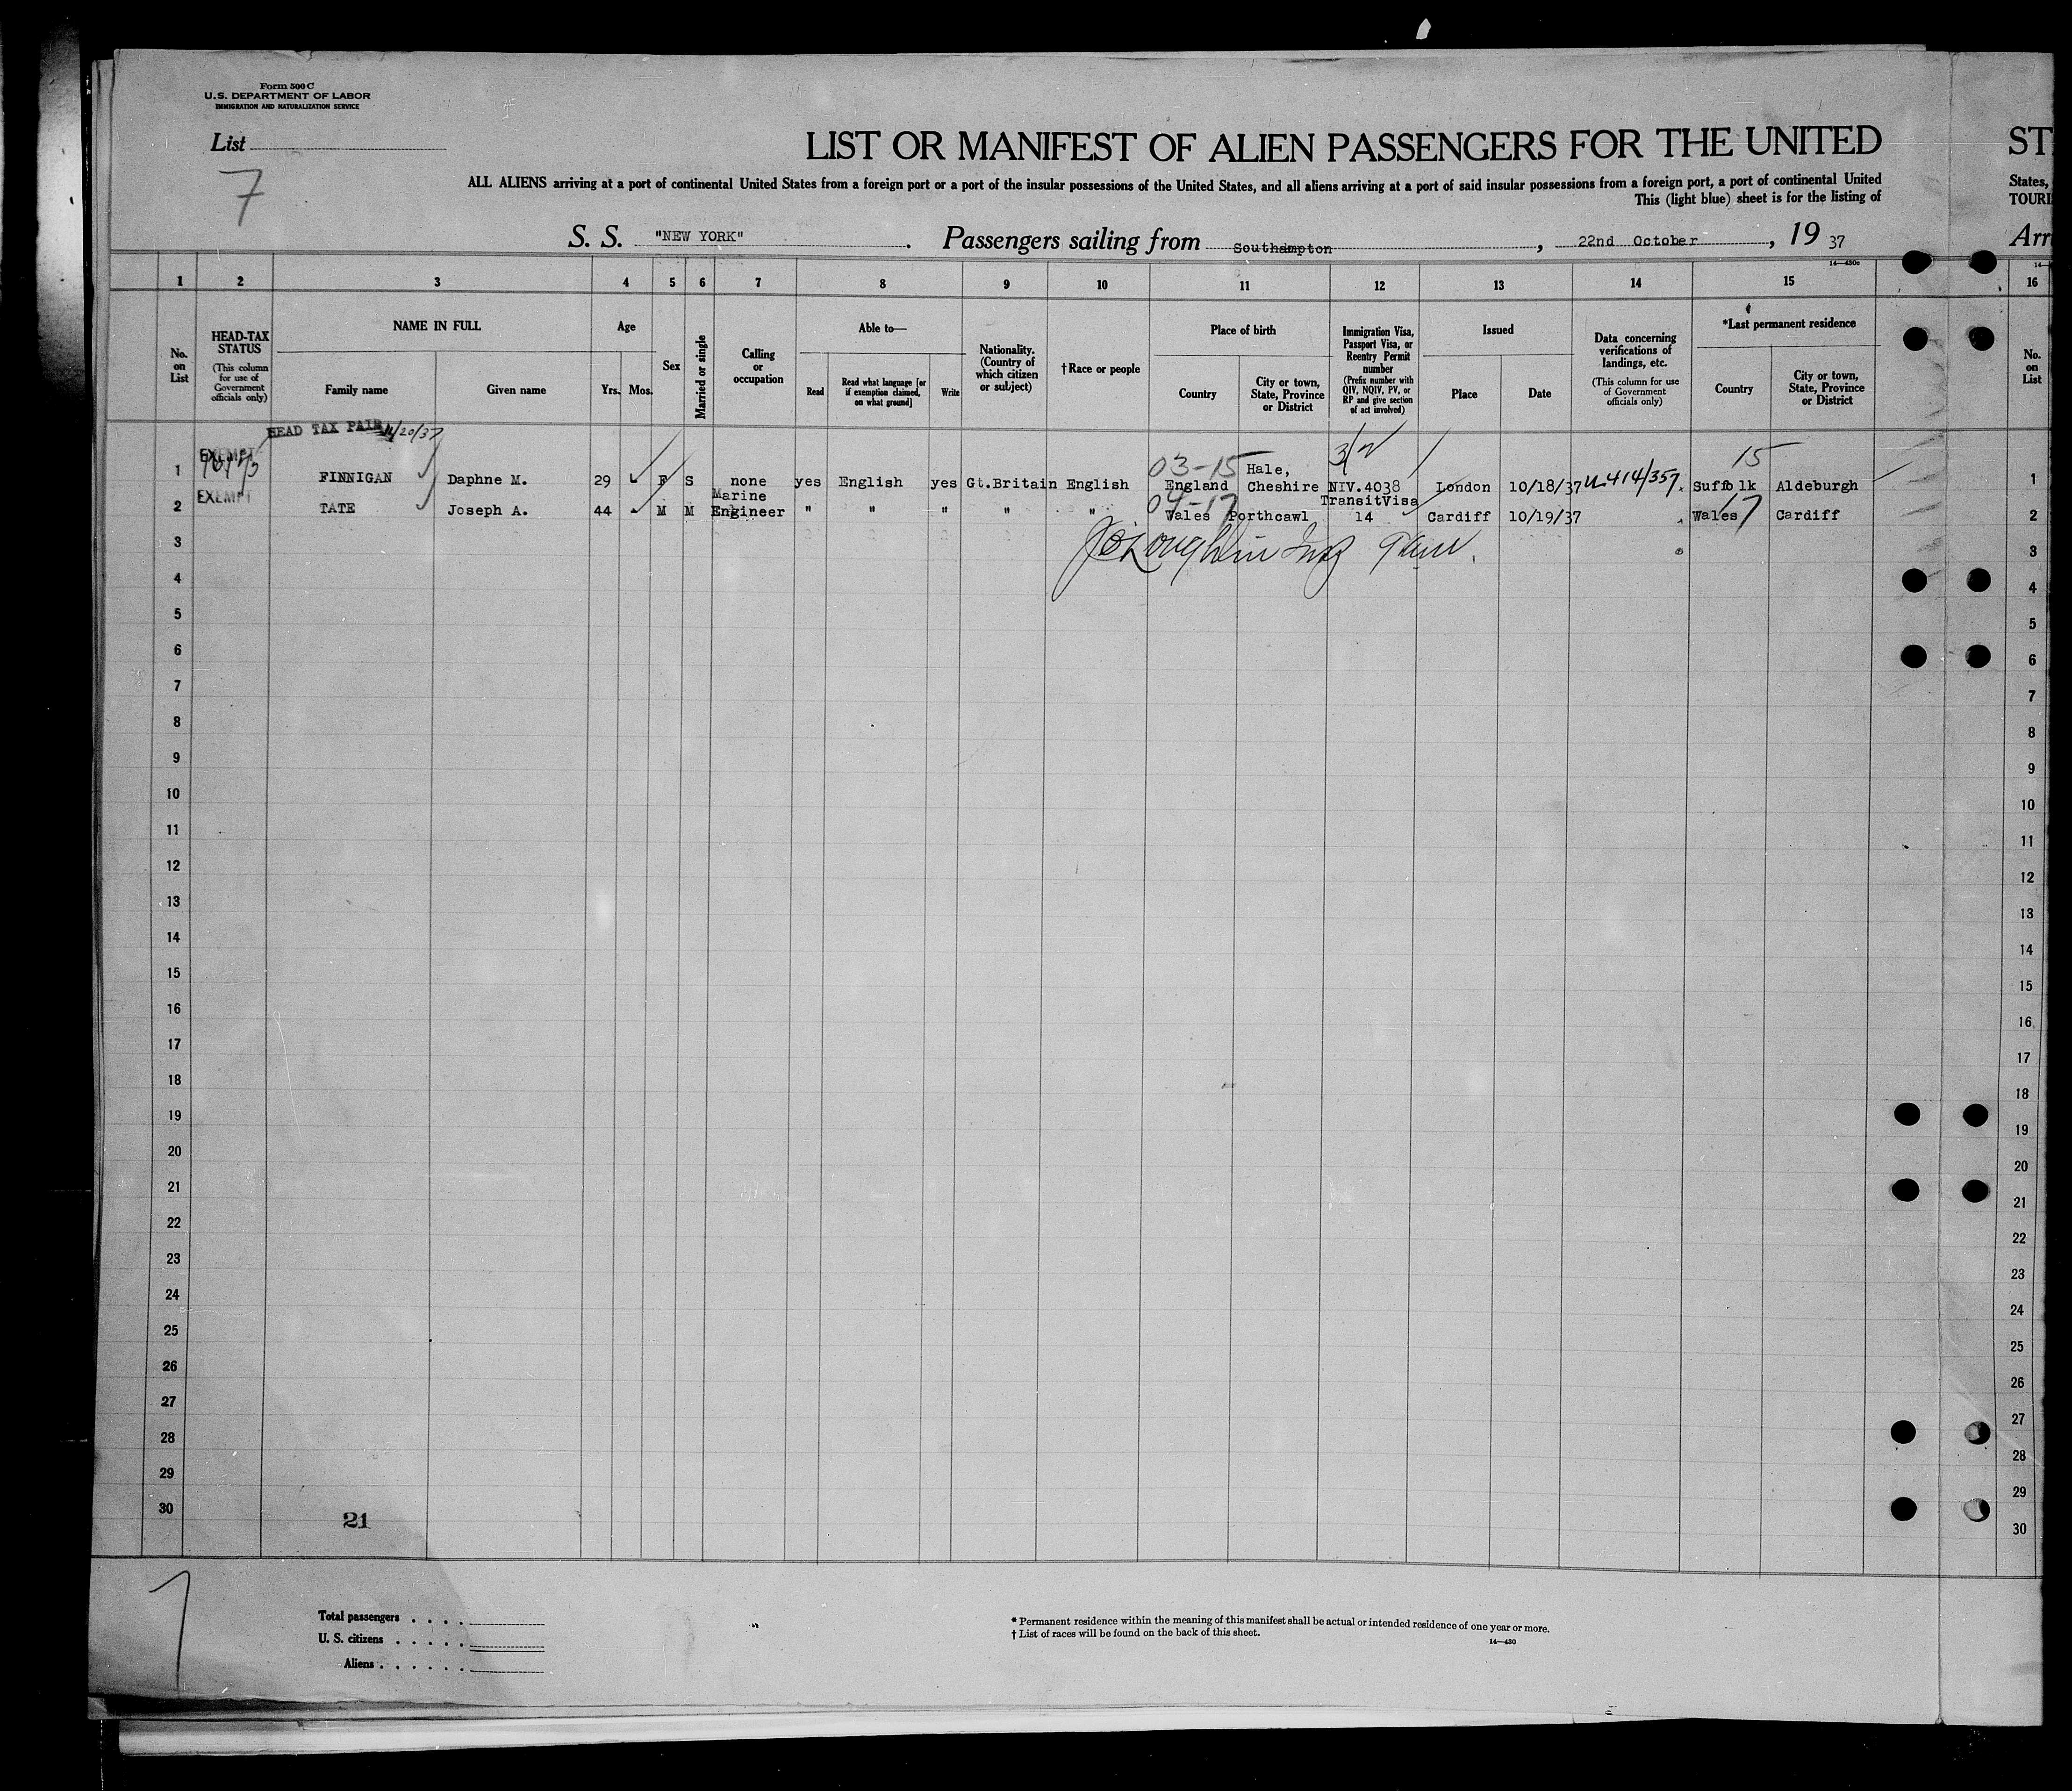 Form 500 C
U.S. DEPARTMENT OF LABOR
IMMIGRATION AND NATURALIZATION SERVICE
List
7
LIST OR MANIFEST OF ALIEN PASSENGERS FOR THE UNITED
ST
ALL ALIENS arriving at a port of continental United States from a foreign port or a port of the insular possessions of the United States, and all aliens arriving at a port of said insular possessions from a foreign port, a port of continental United
States,
This (light blue) sheet is for the listing of
TOURI
S. S. "NEW YORK". Passengers sailing from Southampton, 22nd October, 19 37
Arr
14—430c
1 2 3 4 5 6 7 8 9 10 11 12 13 14 15 16
No. on List
HEAD-TAX STATUS (This column for use of Government officials only)
NAME IN FULL
Family name
Given name
Age
Yrs. Mos.
Sex
Married or single
Calling or occupation
Able to—
Read
Read what language [or if exemption claimed, on what ground]
Write
Nationality. (Country of which citizen or subject)
†Race or people
Place of birth
Country
City or town, State, Province or District
Immigration Visa, Passport Visa, or Reentry Permit number (Prefix number with QIV, NQIV, PV, or RP and give section of act involved)
Issued
Place
Date
Data concerning verifications of landings, etc. (This column for use of Government officials only)
*Last permanent residence
Country
City or town, State, Province or District
No. on List
HEAD TAX PAID 11/20/37
EXEMPT
03-15 3/2 15
1 FINNIGAN Daphne M. 29 F S none yes English yes Gt.Britain English England Hale, Cheshire NIV.4038 London 10/18/37 414/357 Suffolk Aldeburgh 1
EXEMPT
04-17 17
2 TATE Joseph A. 44 M M Marine Engineer " " " " " Wales Porthcawl TransitVisa 14 Cardiff 10/19/37 Wales Cardiff 2
3 3
4 4
5 5
6 6
7 7
8 8
9 9
10 10
11 11
12 12
13 13
14 14
15 15
16 16
17 17
18 18
19 19
20 20
21 21
22 22
23 23
24 24
25 25
26 26
27 27
28 28
29 29
30 30
21
Total passengers . . . .
U. S. citizens . . . . .
Aliens . . . . . .
* Permanent residence within the meaning of this manifest shall be actual or intended residence of one year or more.
† List of races will be found on the back of this sheet.
14—430